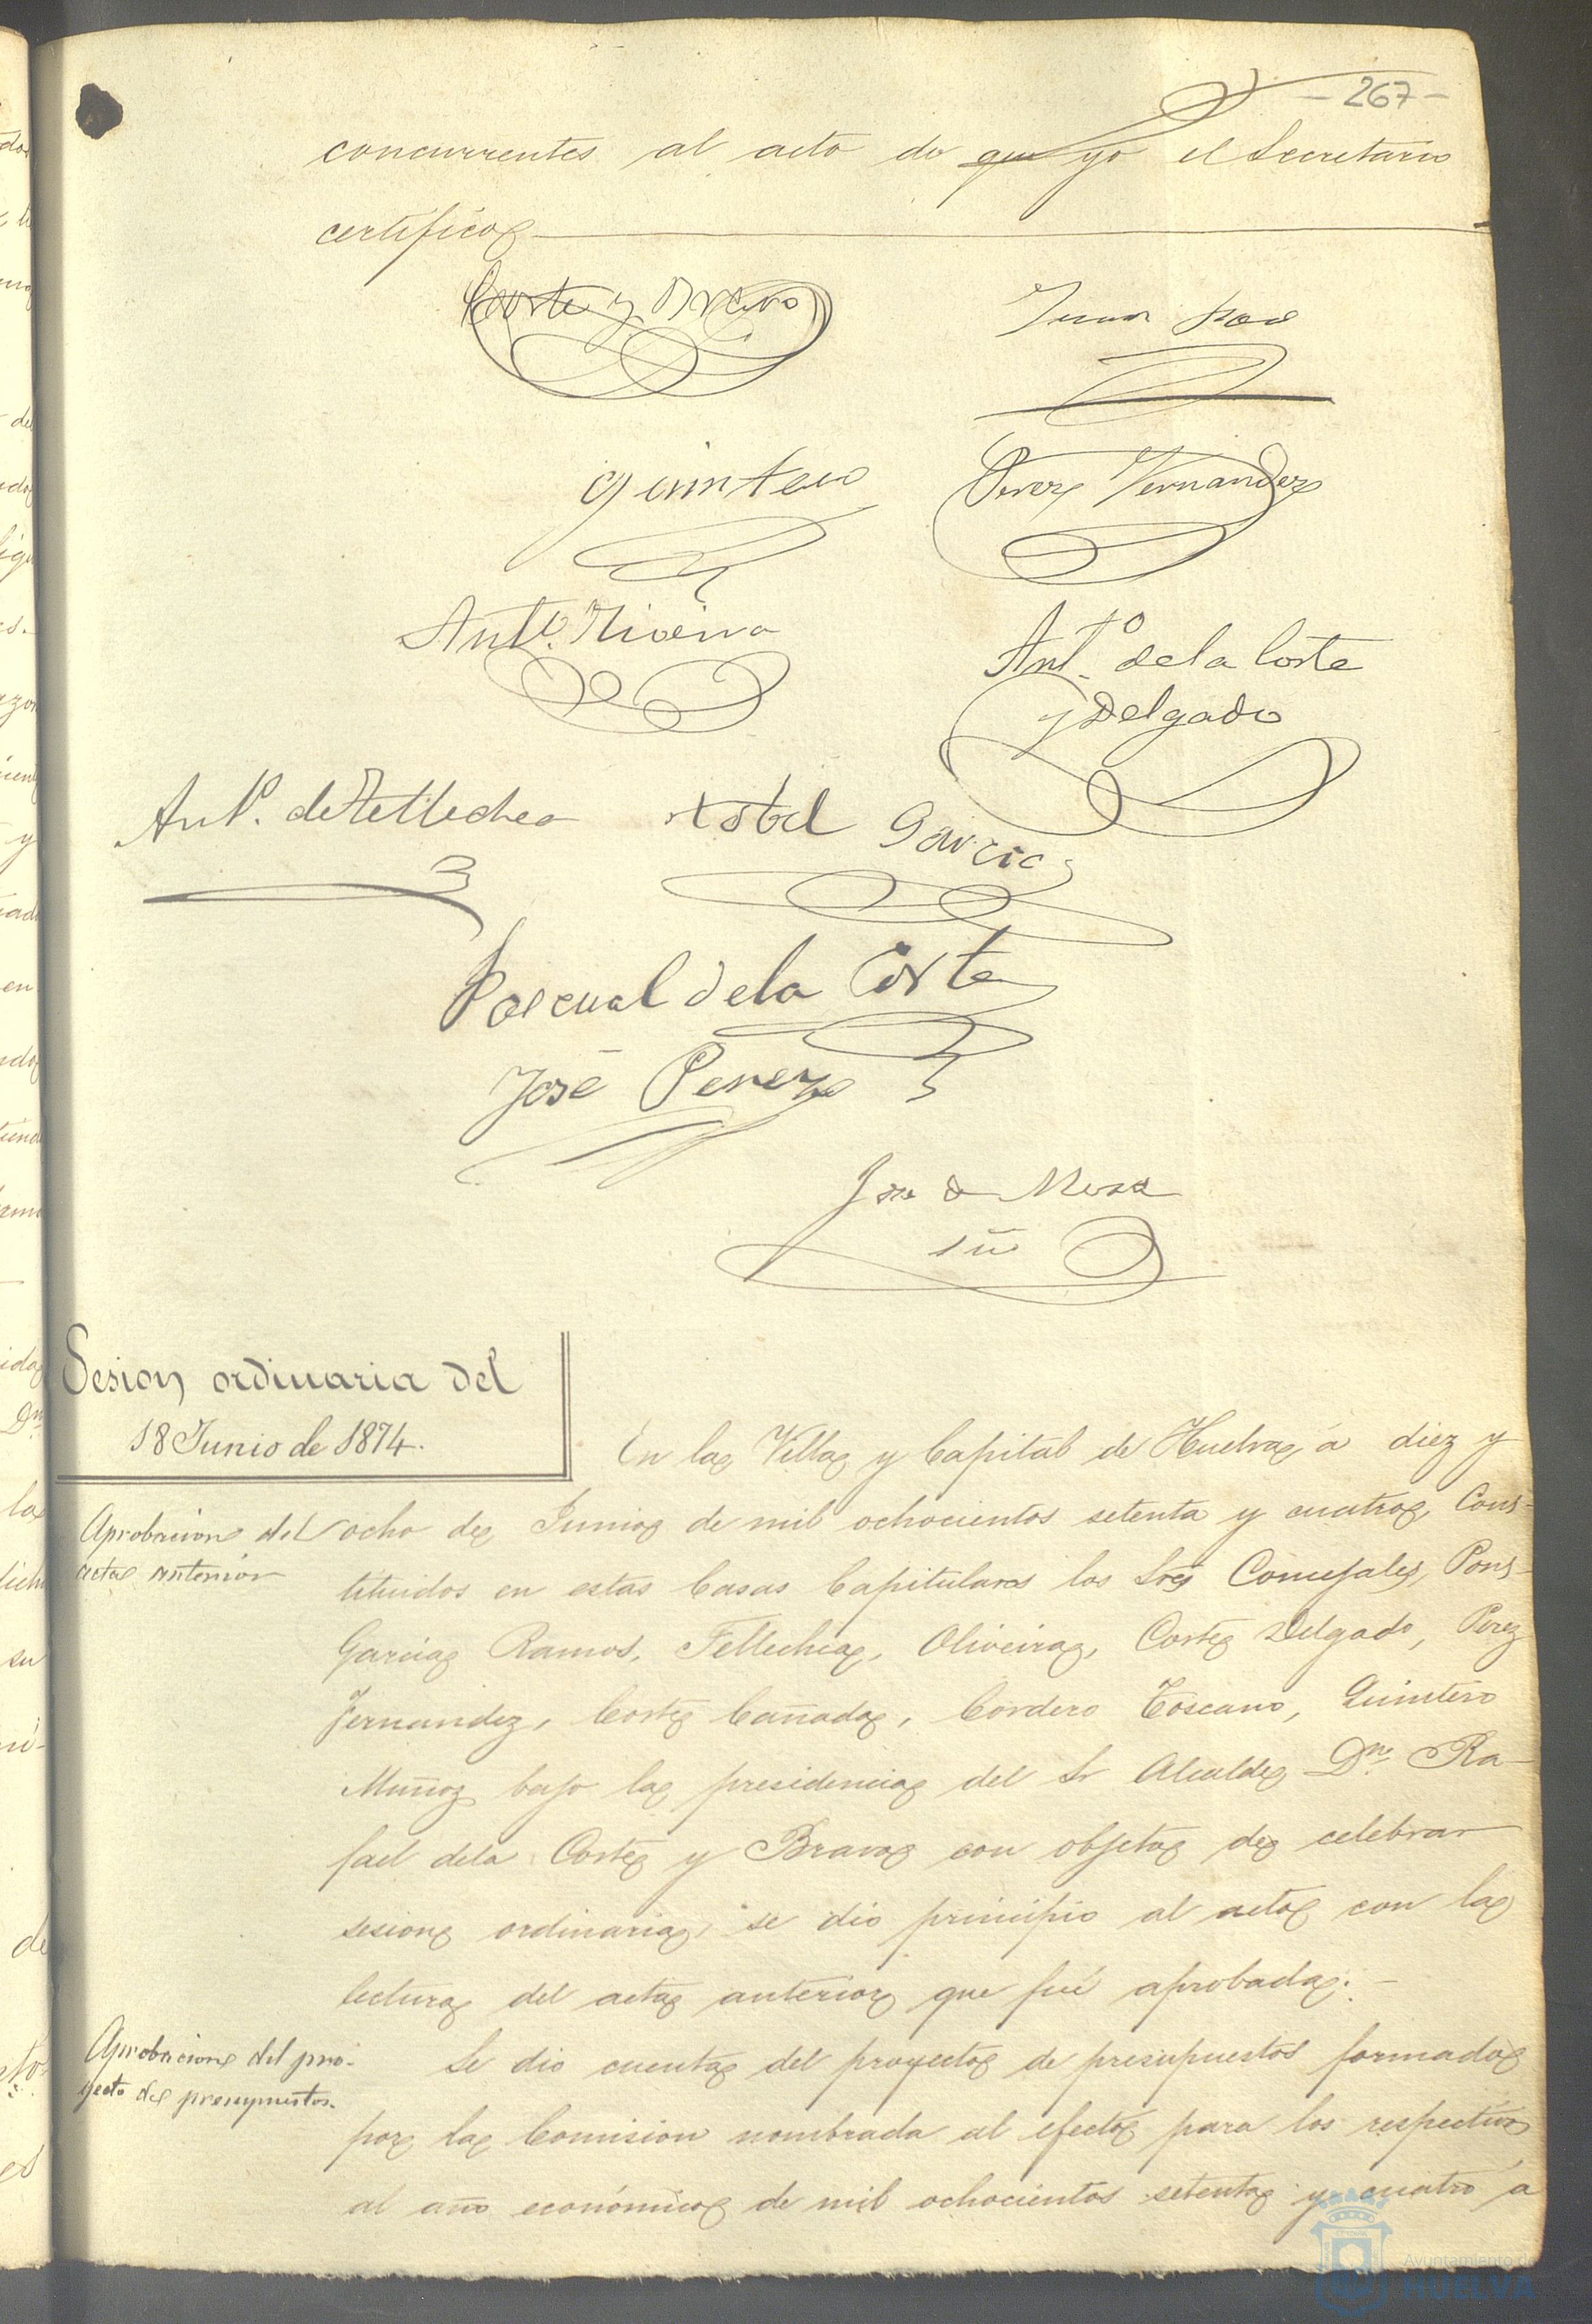 - 267 -
concurrentes al acto de que yo el Secretario
certifico
Corte y Bravo
Juan Pons
Quintero
Perez Fernandez
Antº. Oliveira
Antº de la Corte
y Delgado
Antº. de Tellechea
Garcia
Pascual de la Corte
José Perez
José de
Srio
Sesion ordinaria del
18 Junio de 1874.
En la Villa y Capital de Huelva á diez y
Aprobacion del
acta anterior
ocho de Junio de mil ochocientos setenta y cuatro, Cons-
tituidos en estas Casas Capitulares los Sres Concejales, Pons-
Garcia Ramos, Tellechea, Oliveira, Corte Delgado, Perez
Fernandez, Corte Cañada, Cordero Toscano, Quintero
Muñoz bajo la presidencia del Sr Alcalde Dn. Ra-
fael dela Corte y Bravo con objeto de celebrar
sesion ordinaria, se dio principio al acto con la
lectura del acta anterior que fué aprobada.-
Aprobacion del pro-
yecto de presupuestos.
Se dio cuenta del proyecto de presupuestos formado
por la Comision nombrada al efecto para los respectivos
al año económico de mil ochocientos setenta y cuatro á
Ayuntamiento de
HUELVA